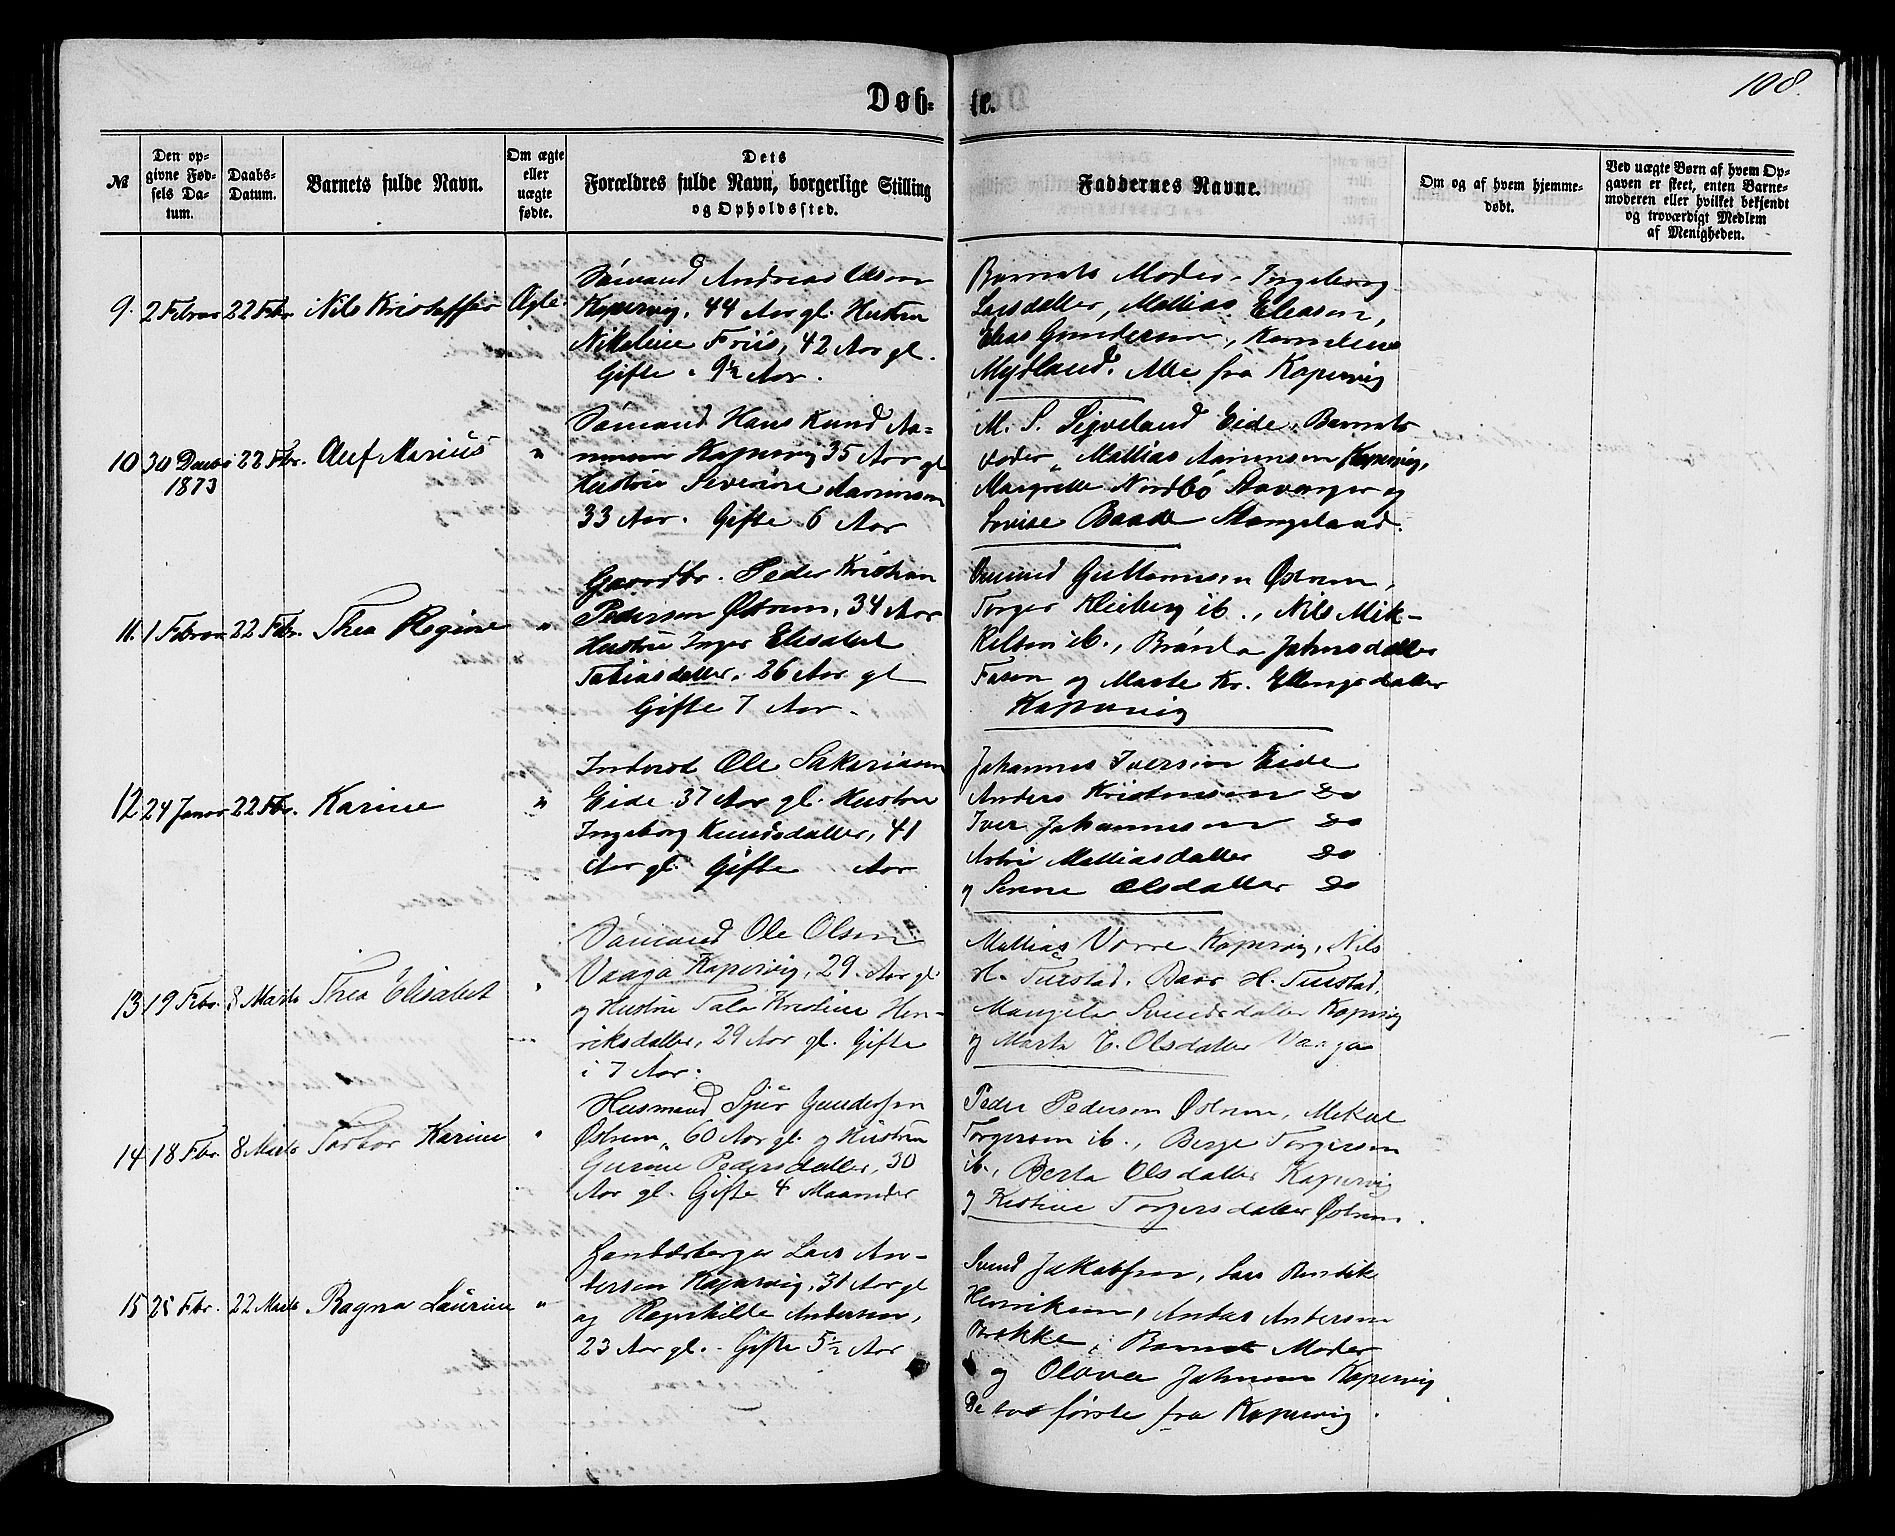 108.
Døb- te.
№
Den op-
givne Fød-
sels Da-
tum.
Daabs-
Datum.
Barnets fulde Navn.
Om ægte
eller
uægte
fødte.
Dets
Forældres fulde Navn, borgerlige Stilling
og Opholdssted.
Faddernes Navne.
Om og af hvem hjemme-
døbt.
Ved uægte Børn af hvem Op-
gaven er skeet, enten Barne-
moderen eller hvilket bekjendt
og troværdigt Medlem
af Menigheden.
9. 2 Febrar 22 Febr. Nils Kristoffer Ægte
Sømand Andreas Olsen
Kopervig, 44 Aar gl. Hustru
Nikoline Friis, 42 Aar gl.
Gifte 9½ Aar.
Barnets Moder Ingeborg
Larsdatter, Mattias Eliasen,
Elias Gundersen, Karoline
Mydland. Alle fra Kopervig
10 30 Decbr 22 Fbr. Oluf Marius "
1873
Sømand Hans Knud Aa-
munsen Kopervig 35 Aar gl
Hustru Severine Aamunsen
33 Aar. Gifte 6 Aar
M. S. Sigveland Eide, Barnets
Moder, Mattias Aamunsen Kopervig,
Margrette Nordbö Stavanger og
Lovise Baade Stangeland.
11. 1 Febrar 22 Fbr. Thea Regine "
Gaardbr. Peder Kristian
Pedersen Østrem, 34 Aar
Hustru Inger Elisabet
Tobiasdatter, 26 Aar gl
Gifte 7 Aar.
Omund Guttormsen Østrem,
Torger Kleiberg ib., Nils Mik-
kelsen ib., Brønla Johnsdatter
Fosen og Marte Kr. Ellingsdatter
Kopervig
12. 24 Januar 22 Fbr. Karine "
Inderst Ole Sakariasen
Eide 37 Aar gl. Hustru
Ingeborg Knudsdatter, 41
Aar gl. Gifte Aar
Johannes Iversen Eide
Anders Kristensen Do
Iver Johannesen Do
Mattiasdatter Do
og Serine Olsdatter Do
13 19 Febr. 8 Marts Thea Elisabet "
Sømand Ole Olsen
Vaaga Kopervig, 29 Aar gl.
og Hustru Tala Kristine Hen-
riksdatter, 29 Aar gl. Gifte
i 7 Aar.
Mattias Vorre Kopervig, Nils
H. Tuestad, Baar H. Tuestad,
Mangela Svendsdatter Kopervig
og Marta T. Olsdatter Vaaga
14 18 Fbr. 8 Marts Torbor Karine "
Husmand Sjur Gundersen
Østrem, 60 Aar gl. og Hustru
Gurine Pedersdatter, 30
Aar gl. Gifte 4 Maaneder
Peder Pedersen Østrem, Mikal
Torgersen ib., Berge Torgersen
ib., Berta Olsdatter Kopervig
og Kristine Torgersdatter Østrem.
15 25 Fbr. 22 Marts Ragna Laurine "
Handelsborger Lars An-
dersen Kopervig, 31 Aar gl
og Regnhilde Andersen,
23 Aar gl. Gifte 5½ Aar
Svend Jakobsen, Lars Bendik
Henriksen, Andas Andersen
Brekke, Barnets Moder
og Olava Johnsen Kopervig
De to første fra Kopervig.